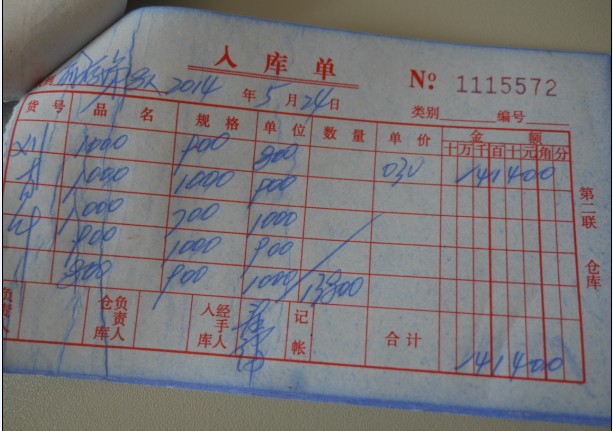 入库单
№ 1115572
2014年5月24日
类别 编号
货号 品名 规格 单位 数量 单价 金额
十万千百十元角分
1000 900 800 030 141400
1000 1000 900
1000 700 1000
900 1000 900
800 900 1000 13800
第二联 仓库
负责人 仓库负责人 入库经手人 记帐 合计 141400